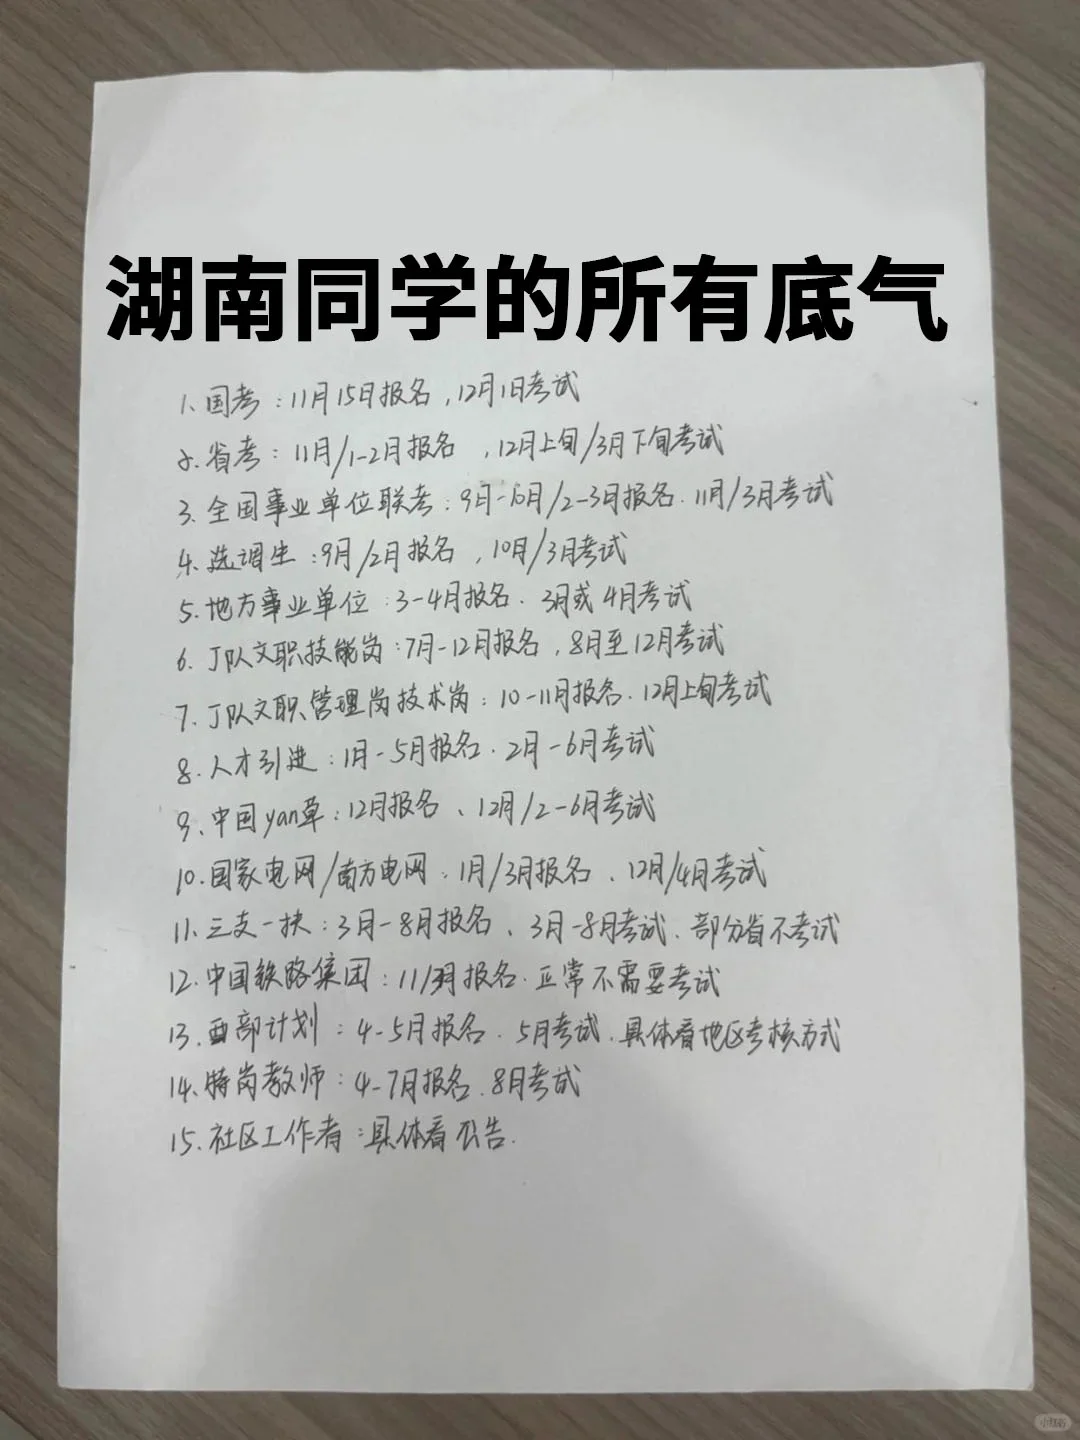 湖南同学的所有底气
1、国考:11月15日报名,12月1日考试
2、省考:11月/1-2月报名,12月上旬/3月下旬考试
3、全国事业单位联考:9月-10月/2-3月报名、11月/3月考试
4、选调生:9月/2月报名,10月/3月考试
5、地方事业单位:3-4月报名、3月或4月考试
6、J队文职技能岗:7月-12月报名,8月至12月考试
7、J队文职管理岗技术岗:10-11月报名、12月上旬考试
8、人才引进:1月-5月报名、2月-6月考试
9、中国yan草:12月报名、12月/2-6月考试
10、国家电网/南方电网:1月/3月报名、12月/4月考试
11、三支一扶:3月-8月报名、3月-8月考试、部分省不考试
12、中国铁路集团:11/3月报名、正常不需要考试
13、西部计划:4-5月报名、5月考试、具体看地区考核方式
14、特岗教师:4-7月报名、8月考试
15、社区工作者:具体看公告.
小红书